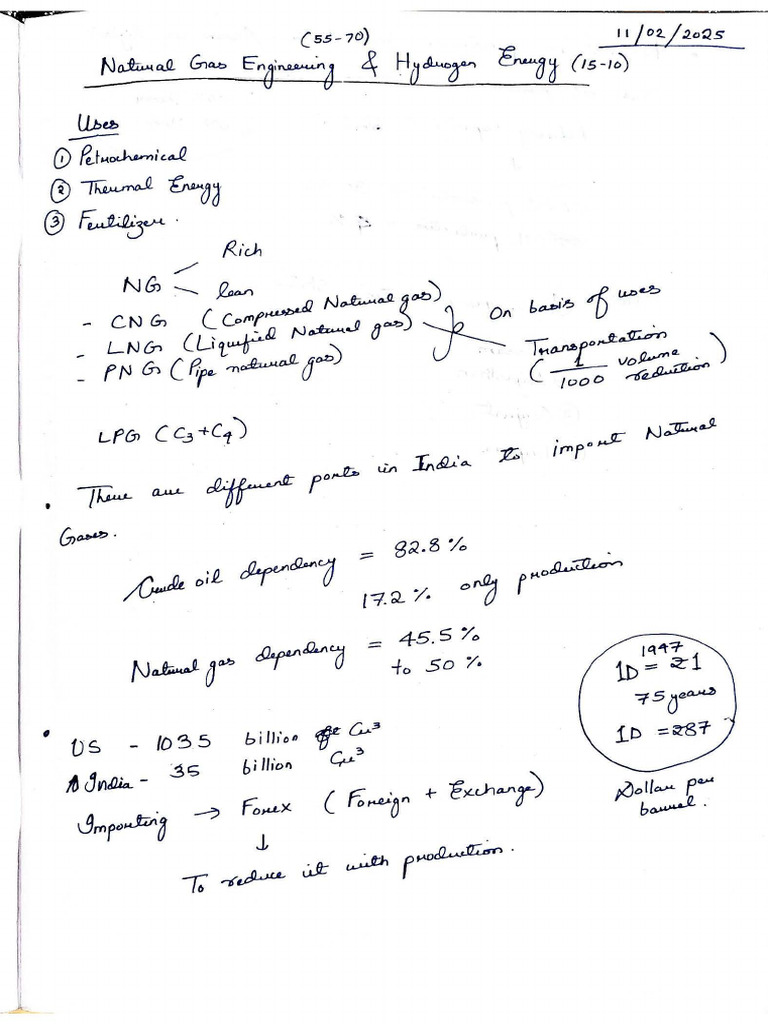 11/02/2025
(55-70)
Natural Gas Engineering & Hydrogen Energy (15-10)
Uses
① Petrochemical
② Thermal Energy
③ Fertilizer.
Rich
NG
lean
- CNG (Compressed Natural gas)
- LNG (Liquified Natural gas)
- PNG (Pipe natural gas)
On basis of uses
Transportation
(1/1000 volume reduction)
LPG (C3+C4)
• There are different ports in India to import Natural
Gases.
Crude oil dependency = 82.8%
17.2% only production
Natural gas dependency = 45.5%
to 50%
1947
1D = 21
75 years
1D = 287
Dollar per
barrel.
• US - 1035 billion Cu³
India - 35 billion Cu³
Importing → Forex (Foreign + Exchange)
↓
To reduce it with production.